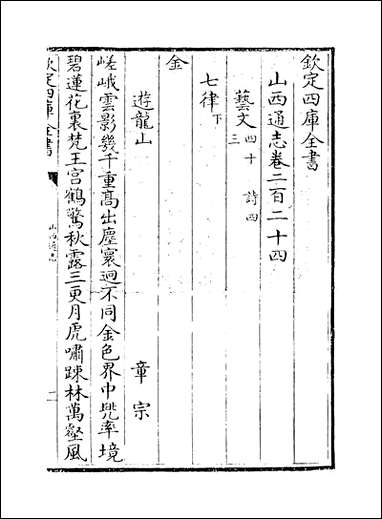 欽定四庫全書
山西通志卷二百二十四
藝文四十三 詩四
七律下
金
遊龍山 章宗
嵯峨雲影幾千重高出塵寰迥不同金色界中兠率境
碧蓮花裏梵王宮鶴驚秋露三更月虎嘯踈林萬壑風
欽定四庫全書
山西通志